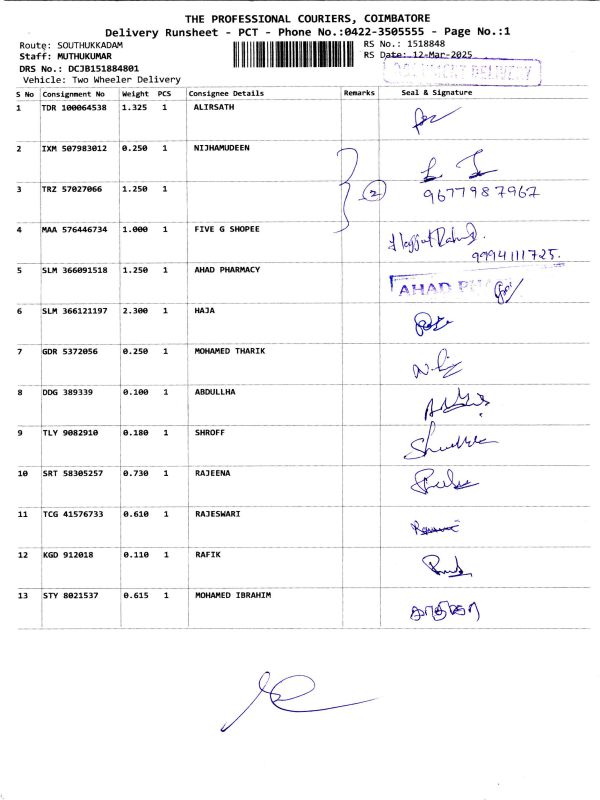 THE PROFESSIONAL COURIERS, COIMBATORE
Delivery Runsheet - PCT - Phone No.:0422-3505555 - Page No.:1
Route: SOUTHUKKADAM
RS No.: 1518848
Staff: MUTHUKUMAR
RS Date: 12-Mar-2025
DRS No.: DCJB151884801
DOCUMENT DELIVERY
Vehicle: Two Wheeler Delivery
S No Consignment No Weight PCS Consignee Details Remarks Seal & Signature
1 TDR 100064538 1.325 1 ALIRSATH
2 IXM 507983012 0.250 1 NIJHAMUDEEN
3 TRZ 57027066 1.250 1 2 9677987967
4 MAA 576446734 1.000 1 FIVE G SHOPEE
9994111725.
5 SLM 366091518 1.250 1 AHAD PHARMACY AHAD
6 SLM 366121197 2.300 1 HAJA
7 GDR 5372056 0.250 1 MOHAMED THARIK
8 DDG 389339 0.100 1 ABDULLHA
9 TLY 9082910 0.180 1 SHROFF
10 SRT 58305257 0.730 1 RAJEENA
11 TCG 41576733 0.610 1 RAJESWARI
12 KGD 912018 0.110 1 RAFIK
13 STY 8021537 0.615 1 MOHAMED IBRAHIM